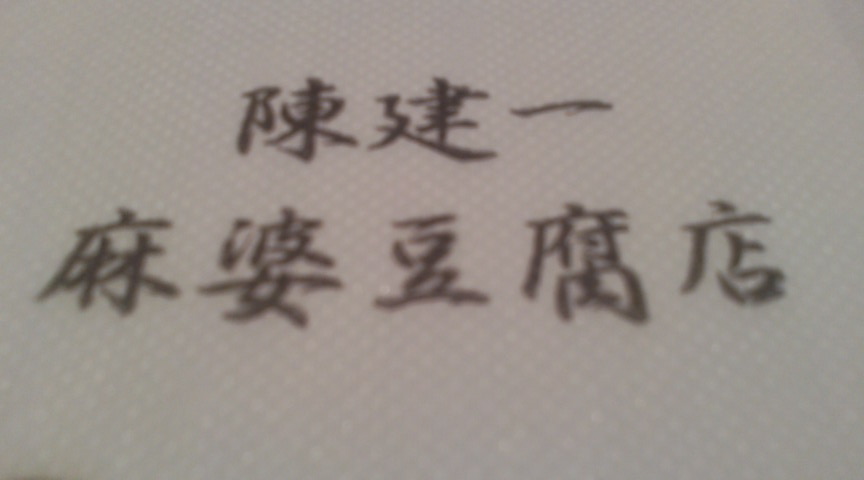 陳建一
麻婆豆腐店